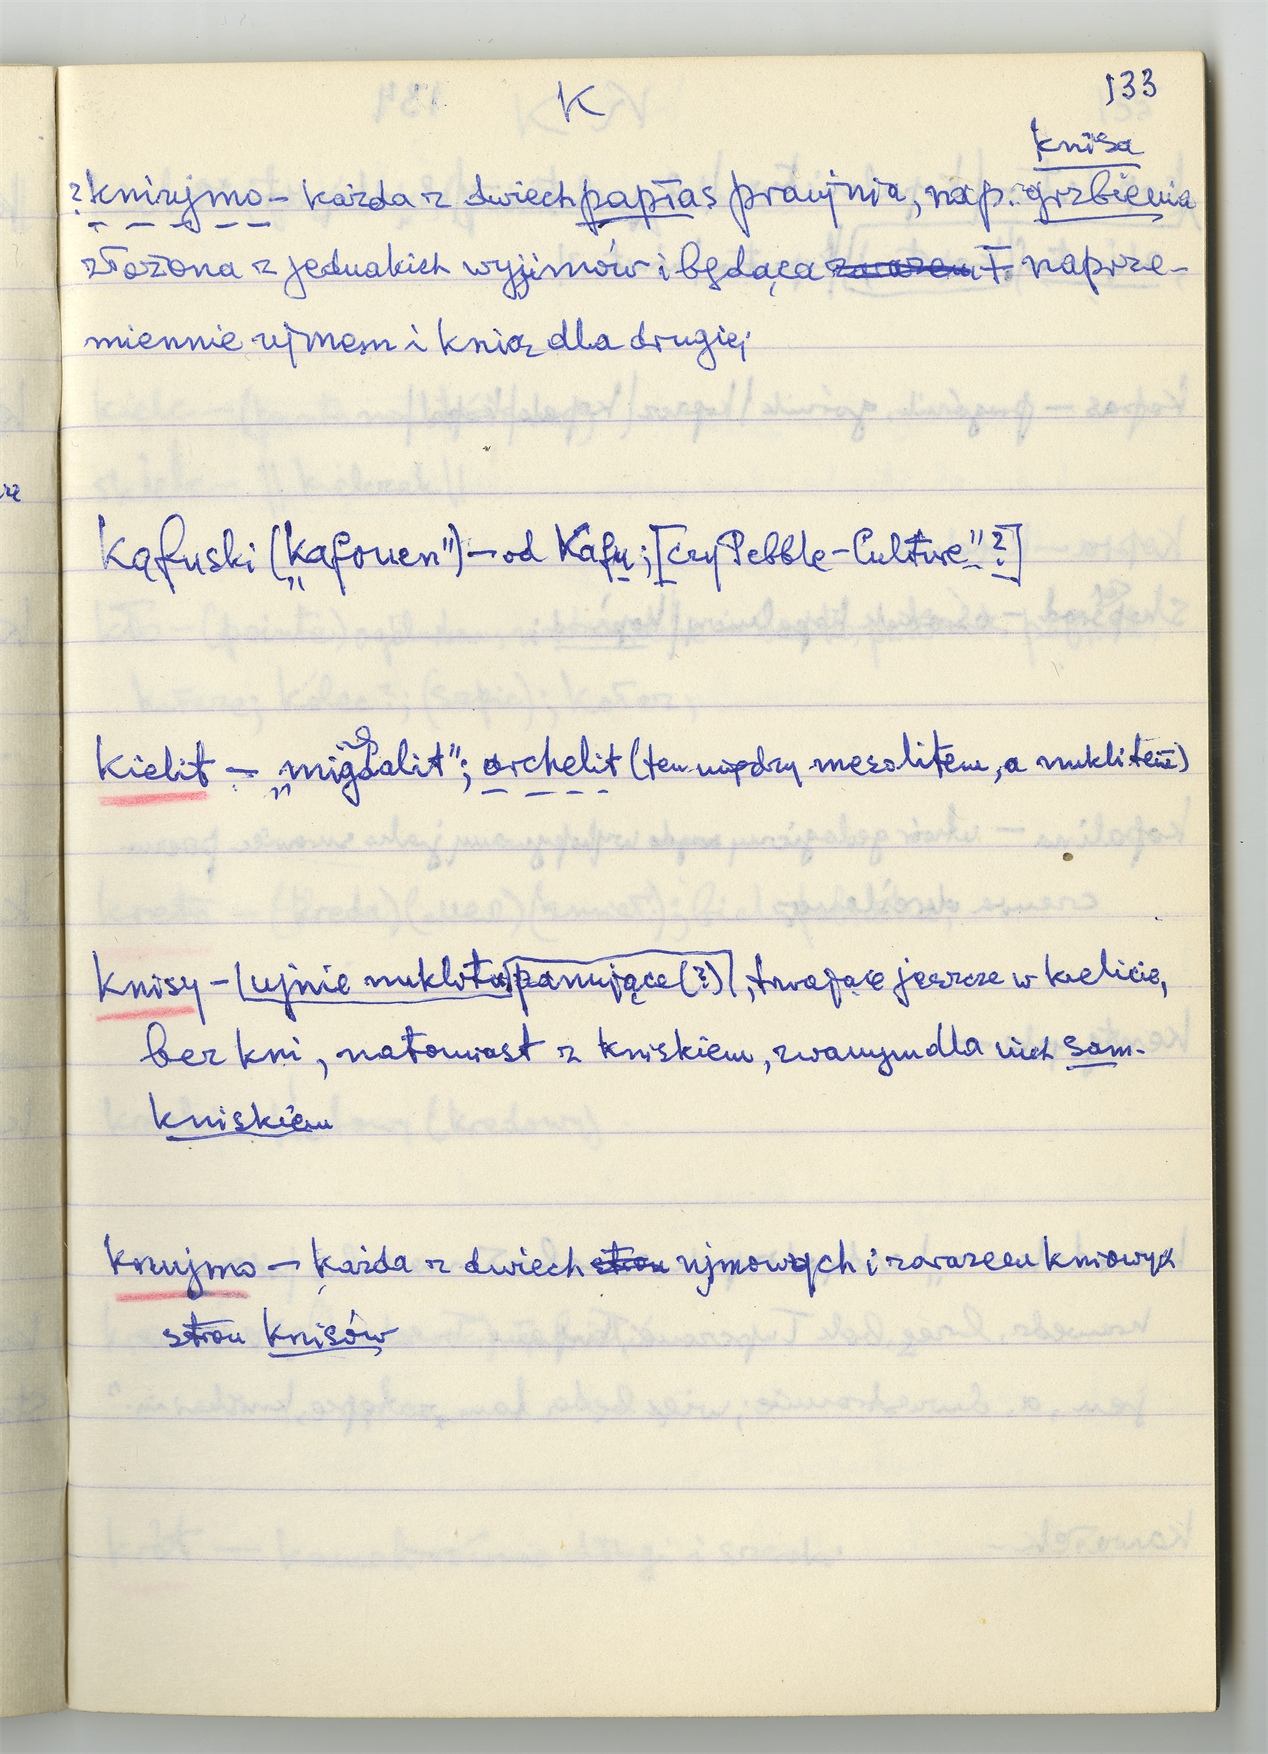 K
133
knisa
? knizjmo – każda z dwiech papłas prawjnia, nap. grzbienia
złożona z jednakich wyjimów i będąca zarazem I naprze-
miennie ujmem i knią dla drugiej
Kafuski („Kafouen") – od Kafu; [czy Pebble-Culture"?]
Kielit – „migdalit"; archelit (ten między mezolitem, a nuklitem)
Knisy – ujnie nuklitu panujące (?), trwające jeszcze w kielicie,
bez kni, natomiast z kniskiem, zwanym dla nich sam-
kniskiem
Knujmo – każda z dwiech stron ujmowych i zarazem kniowych
stron knisów